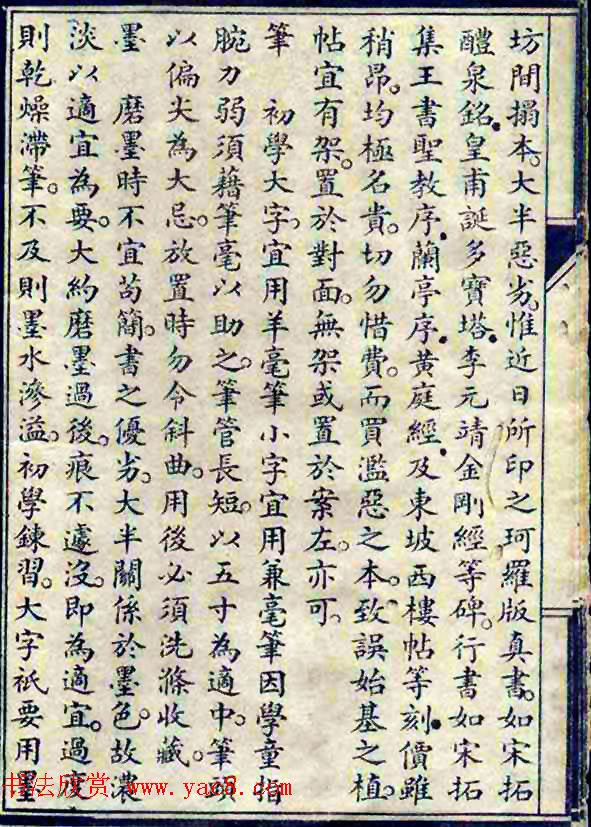 坊間搨本。大半惡劣。惟近日所印之珂羅版真書。如宋拓
醴泉銘.皇甫誕多寶塔.李元靖金剛經.等碑。行書如宋拓
集王書聖教序.蘭亭序.黃庭經.及東坡西樓帖等刻.價雖
稍昂。均極名貴。切勿惜費。而買濫惡之本。致誤始基之植。
帖宜有架。置於對面。無架或置於案左。亦可。
筆　初學大字。宜用羊毫筆小字宜用兼毫筆因學童指
腕力弱須藉筆毫以助之。筆管長短。以五寸為適中。筆頭
以偏尖為大忌。放置時勿令斜曲。用後必須洗滌收藏。
墨　磨墨時不宜苟簡。書之優劣。大半關係於墨色。故濃
淡以適宜為要。大約磨墨過後。痕不遽沒。即為適宜。過度
則乾燥滯筆。不及則墨水滲溢。初學鍊習。大字祇要用墨
书法欣赏 www.yac8.com